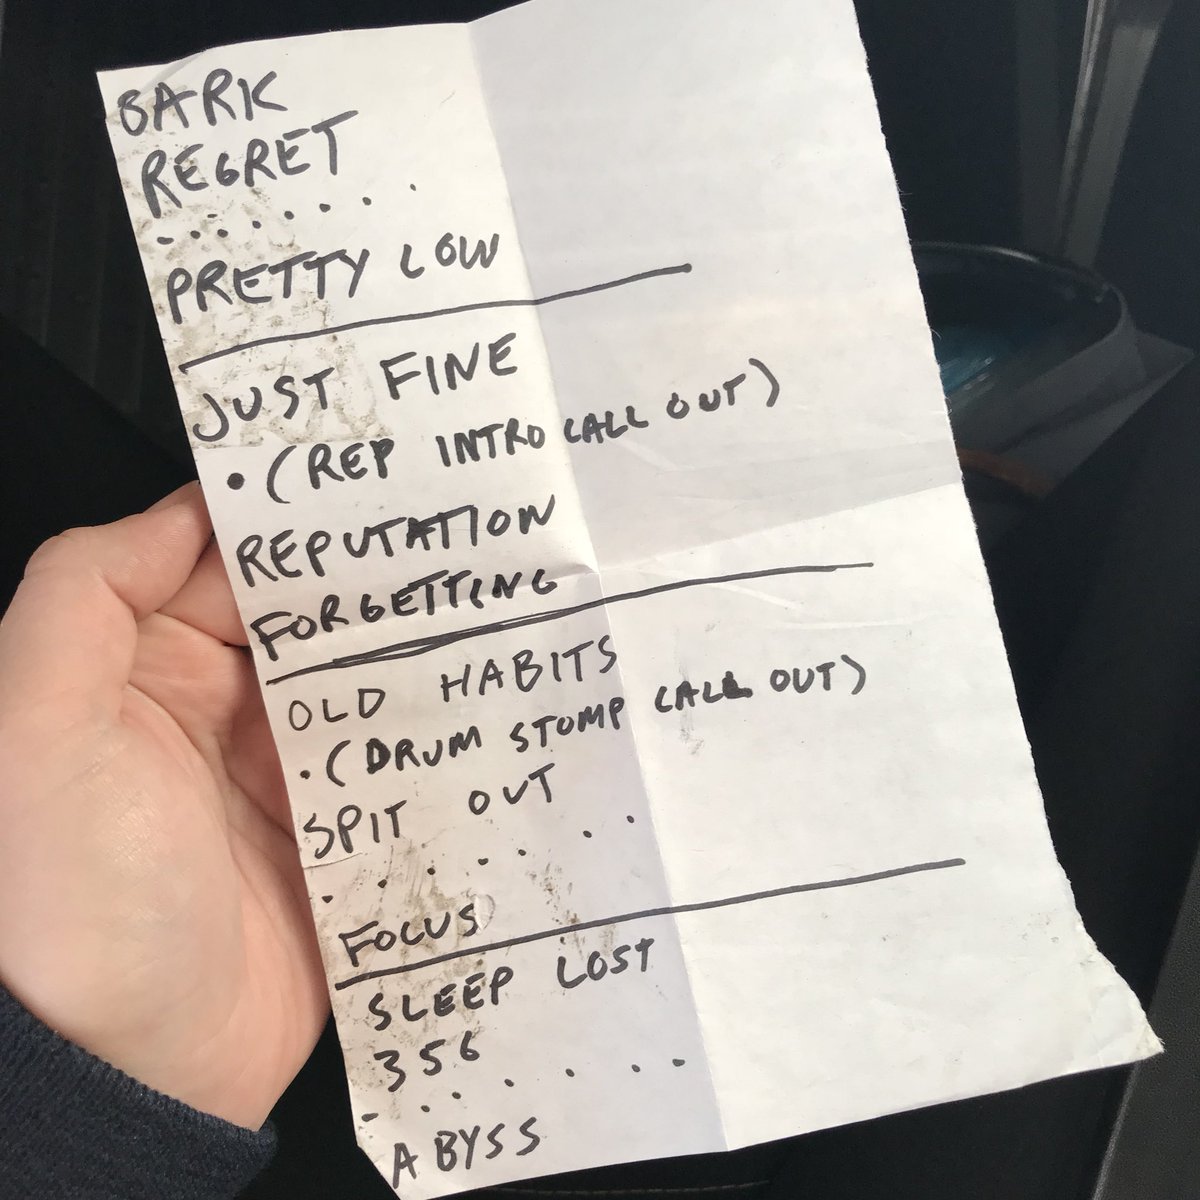 BARK
REGRET
.......
PRETTY LOW
JUST FINE
• (REP INTRO CALL OUT)
REPUTATION
FORGETTING
OLD HABITS
• (DRUM STOMP CALL OUT)
SPIT OUT
.......
FOCUS
SLEEP LOST
356
.......
ABYSS